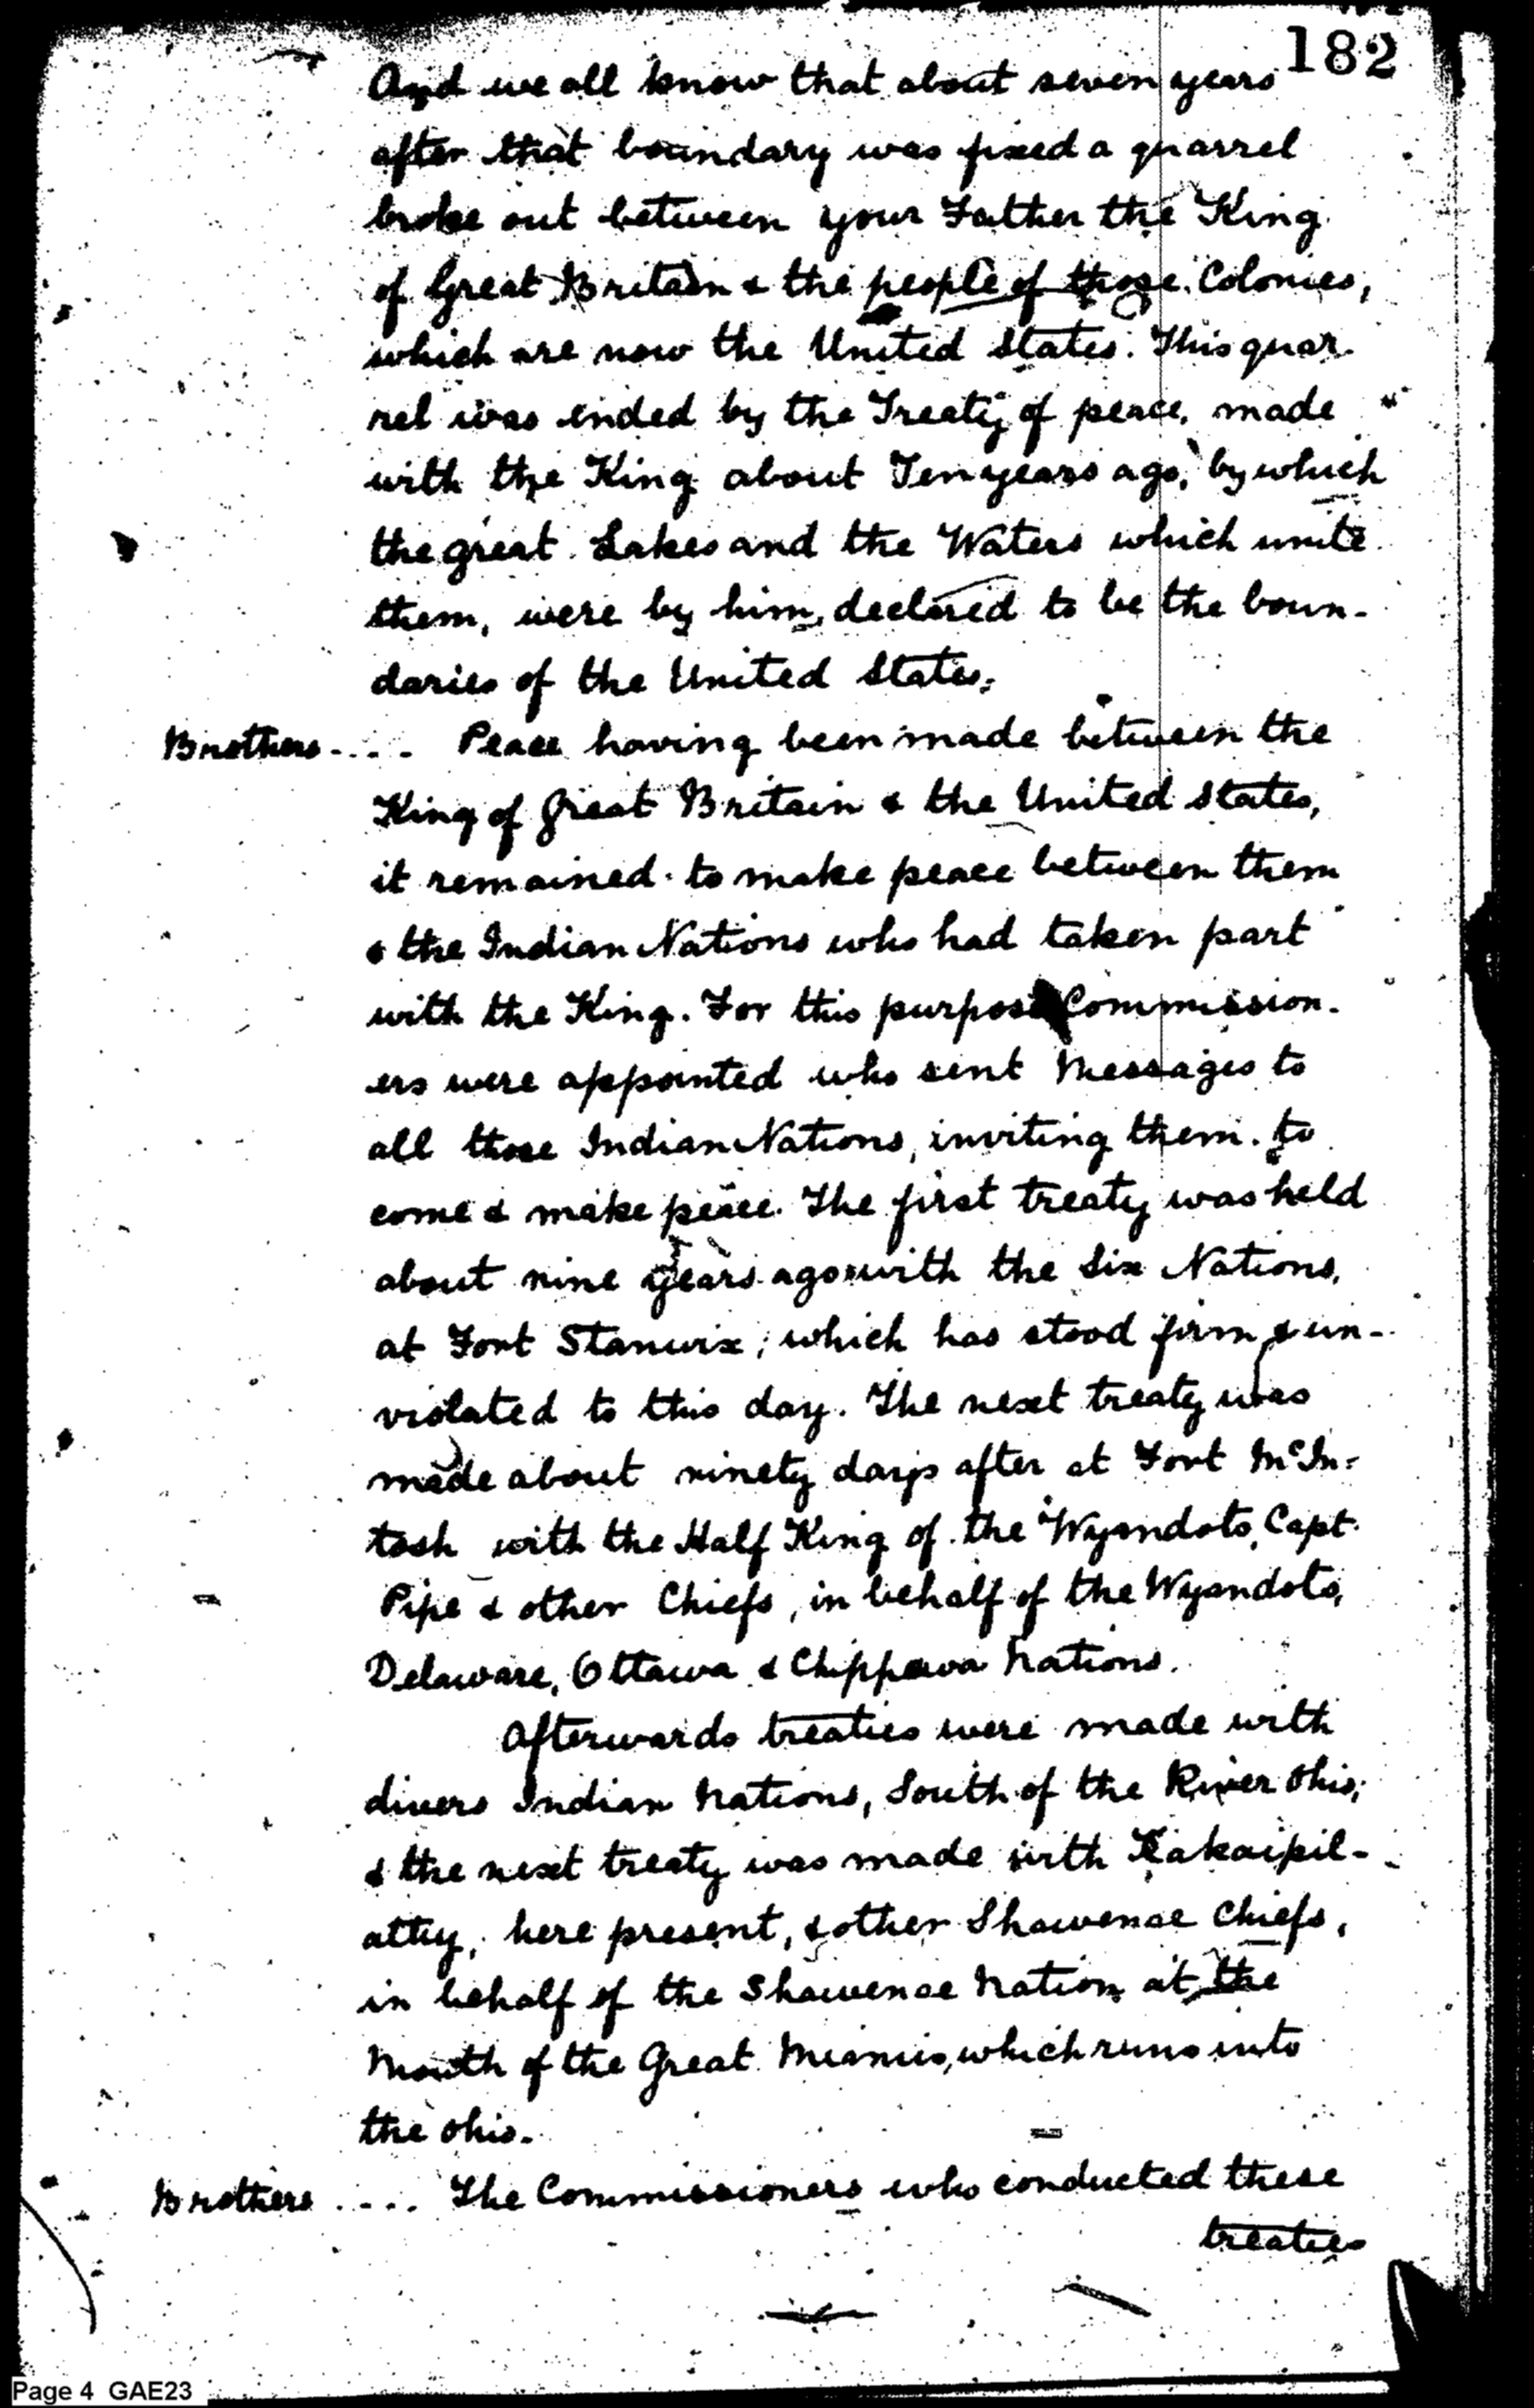 182
And we all know that about seven years
after that boundary was fixed a quarrel
broke out between your Father the King
of Great Britain & the people of those Colonies,
which are now the United States. This quar-
rel was ended by the Treaty of peace, made
with the King about Ten years ago, by which
the great Lakes and the Waters which unite
them, were by him, declared to be the boun-
daries of the United States.
Brothers .... Peace having been made between the
King of Great Britain & the United States,
it remained to make peace between them
& the Indian Nations who had taken part
with the King. For this purpose Commission-
ers were appointed who sent Messages to
all those Indian Nations, inviting them to
come & make peace. The first treaty was held
about nine years ago with the Six Nations,
at Fort Stanwix; which has stood firm & un-
violated to this day. The next treaty was
made about ninety days after at Fort McIn-
tosh with the Half King of the Wyandots, Capt.
Pipe & other Chiefs, in behalf of the Wyandots,
Delaware, Ottawa & Chippawa Nations.
Afterwards treaties were made with
divers Indian Nations, South of the River Ohio;
& the next treaty was made with Kakaipil-
atty, here present, & other Shawenae Chiefs,
in behalf of the Shawenae Nation at the
Mouth of the Great Miamis, which runs into
the Ohio.
Brothers .... The Commissioners who conducted these
treaties
Page 4 GAE23